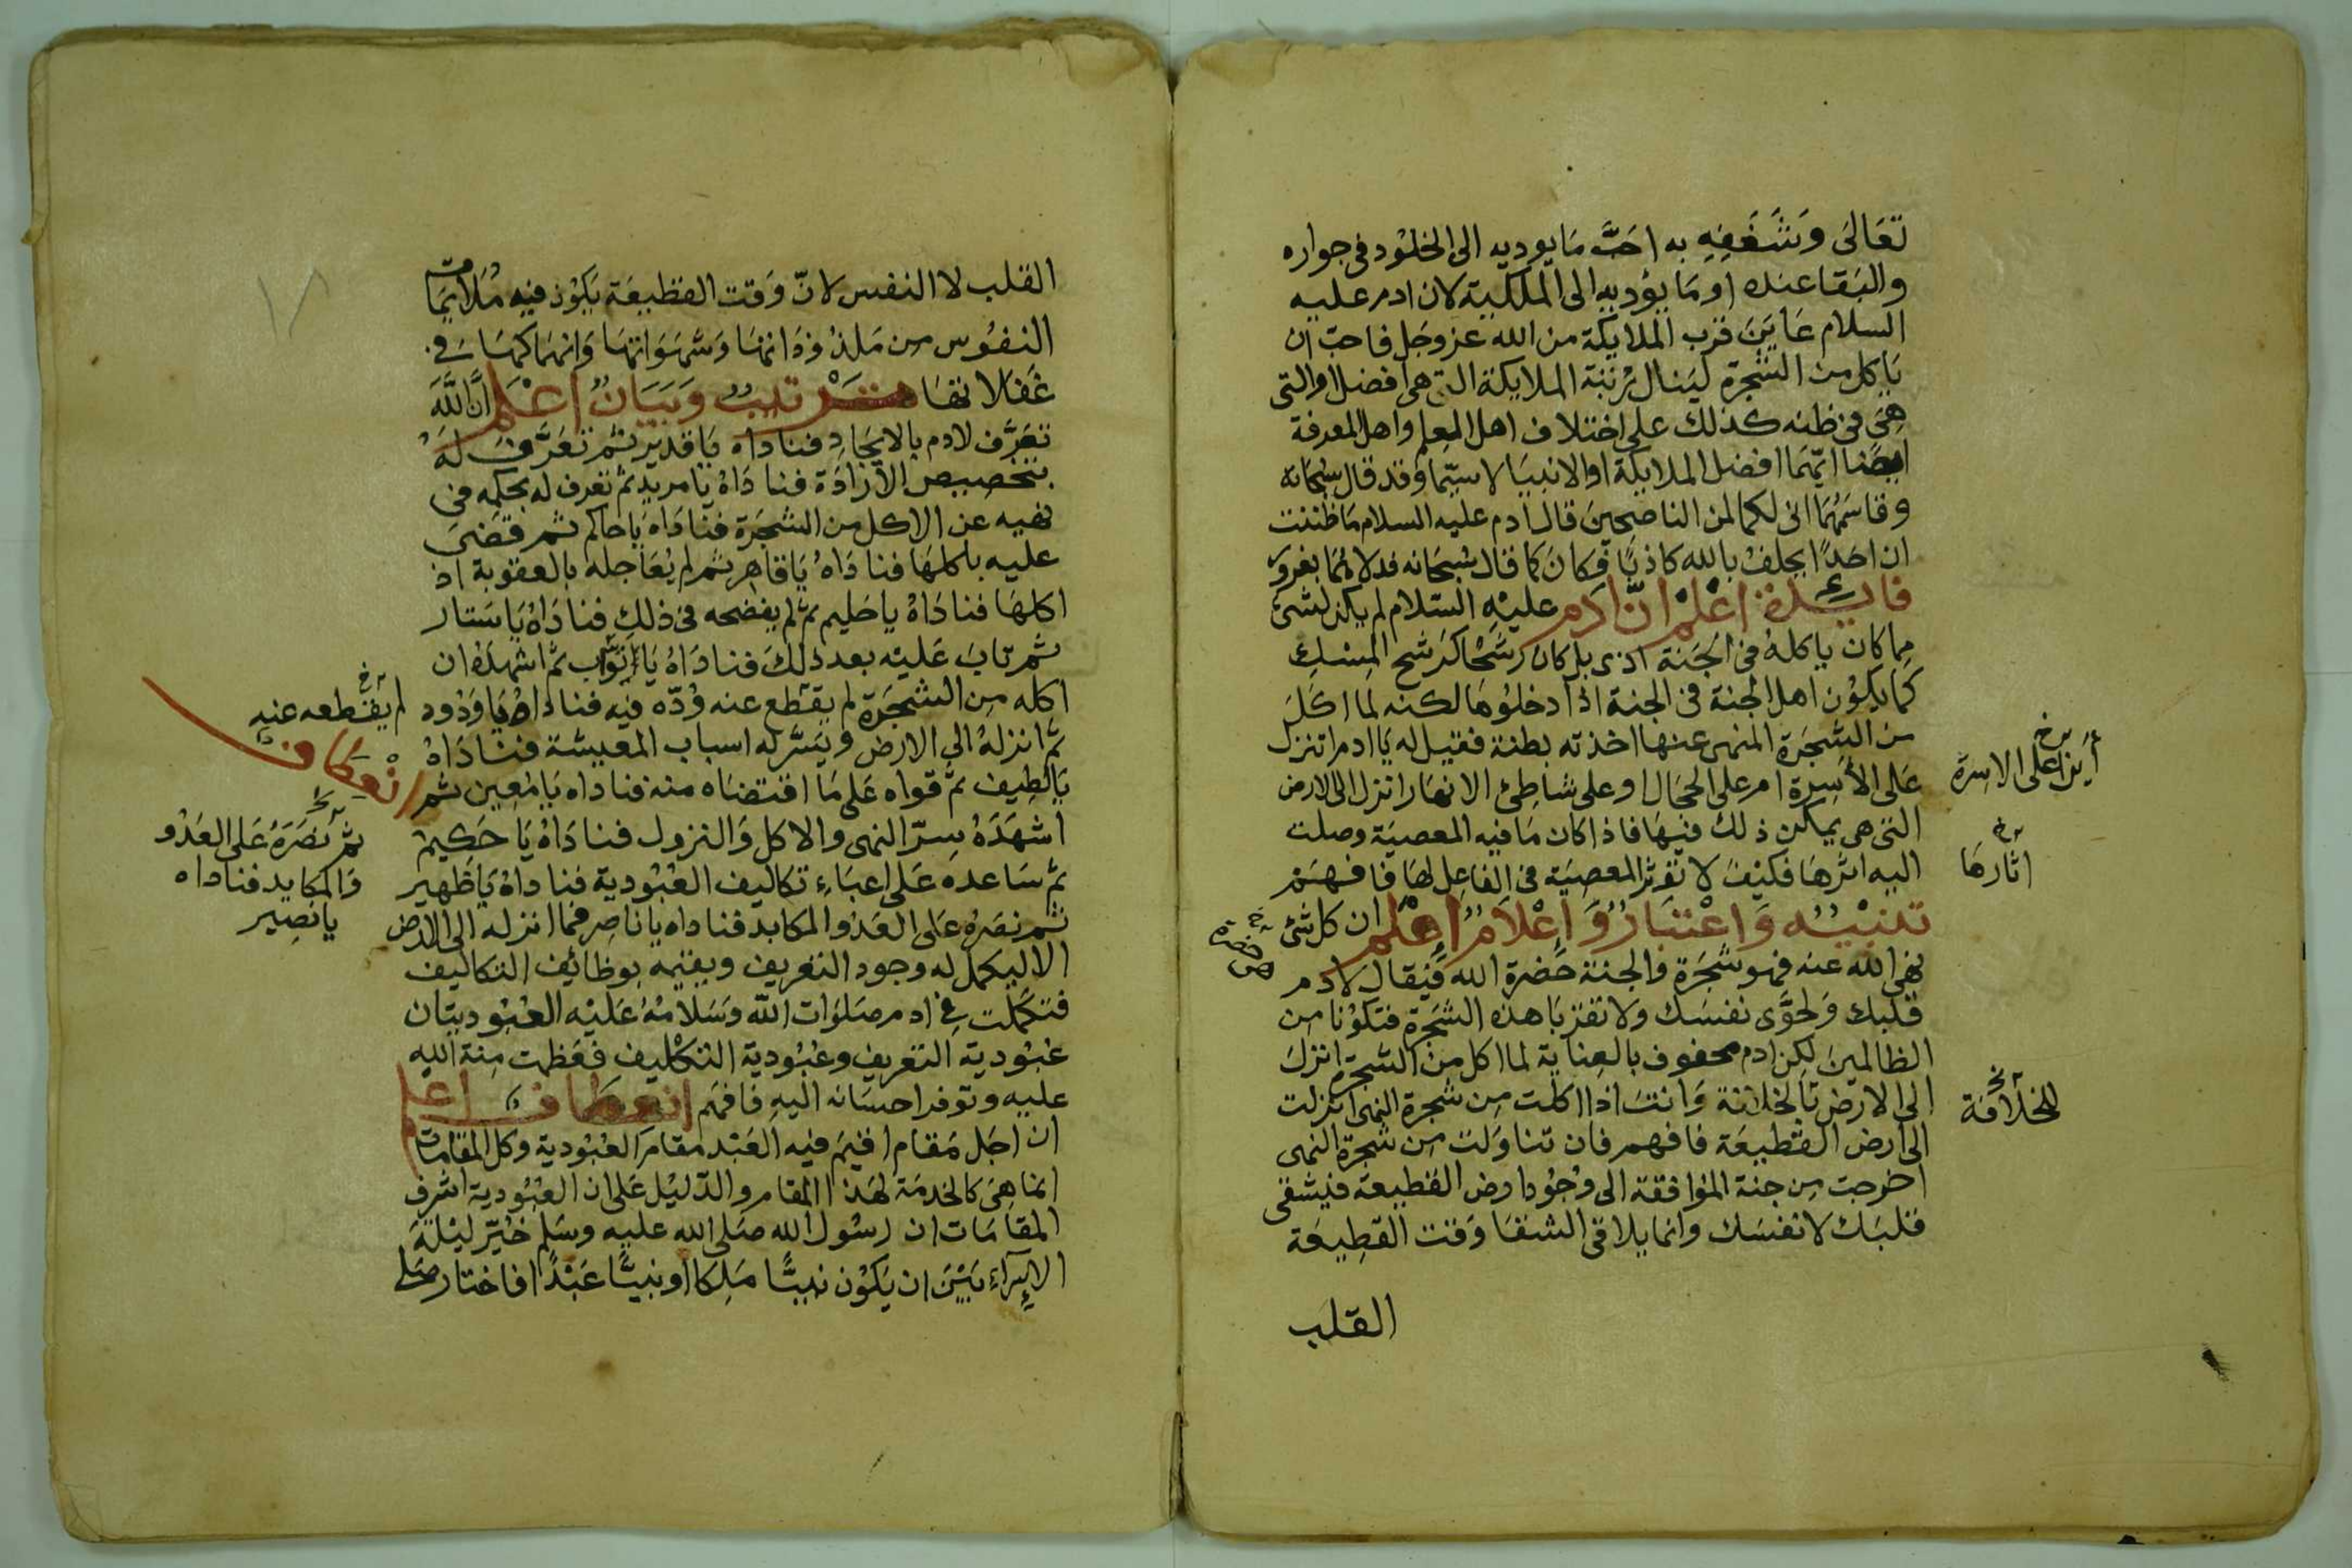 تعَالىَ وَشَغَفِهِ به احَبَّ مَا يوديه الى الخلوُد فى جواره
والبَقا عنده او مَا يؤديه الى الملكية لان ادم عليه
السلام عَايَنَ قرب الملايكة من الله عز وجَل فاحبّ ان
يَاكل من الشجرة ليَنال رُتبَة الملايكة التى هى افضل او التى
هىَ فى ظنه كذلك على اختلاف اهل العلم واهل المعرفة
ايضًا ايّهمَا افضل الملايكة او الانبيَا لاسيّما وَقد قال سُبحَانه
وقاسَمهُمَا انى لكما لمن الناصحينَ قال ادم عليه السلام مَا ظننت
ان احَدًا يحلفُ بالله كاذبًا فكانَ كما قال سُبحَانه فدلاهُمَا بغرور
فايدة اعْلمْ انَّ ادَم عليْهِ السّلام لم يكن لشىٍ
مما كان ياكلهُ فى الجَنة اذى بل كان رشحًا كرَشح المِسْكِ
كما يكوُن اهل الجنة فى الجنة اذا دخلوُهَا لكنه لما اكَلَ
من الشجَرَة المنهى عنها اخذته بطنة فقيل له يَا ادم اتنزل
عَلى الأسِرة ام على الحجَال او على شاطئ الانهَار انزل الى الارض
التى هى يمكن ذلك فيهَا فاذا كان مَا فيه المعصيَة وصلت
اليه اثرهَا فكيْفَ لا تؤثر المعصيَة فى الفاعِل لهَا فافهَم
تنبْيه وَاعْتبَارٌ وَ اعْلاَمٌ اعْلم ان كل شئ
نهى الله عنه فهو شجَرَة والجنة حَضرة الله فيُقال لادم
قلبك وَلحوَّى نفسَك ولا تقربَا هذه الشجَرَة فتكوُنا من
الظالمينَ لكن ادم محفوف بالعِنايَة لما اكل من الشجَرة انزلَ
الى الارض بالخلافة وَانتَ اذا اكلت مِن شجرة النهى انزلت
الى ارض القطيعَة فافهم فان تناوَلتَ مِن شجَرة النهى
اخرجت مِن جنة المُوافقة الى وُجُود ارض القطيعة فيشقى
قلبَك لا نفسَك وانما يلاقى الشقا وَقت القطِيعَة
القلَب
أينز على الاسِرة
اثارهَا
حضرة
للخلافَة
القلب لا النفس لانّ وَقت القطيعَة يَكوُن فيهِ مُلايمَات
النفوُس من مَلذوذاتهَا وَشهَوَاتهَا وَانهمَاكهَا فى
غَفلاتهَا تَرْتيبٌ وَبَيَانٌ اعْلم انَّ اللّهَ
تعَرَّف لادم بالايجَادِ فنادَاه يَا قدير ثم تعَرَّفَ لَهُ
بتخصِيص الارَادَة فنادَاهُ يَا مريد ثم تعرف له بحكمه فى
نهيه عن الاكل من الشجَرَة فنَادَاه يَاحاكم ثم قَضىَ
عليه باكلهَا فنادَاهُ يَاقاهر ثم لم يُعَاجله بالعقوبة اذ
اكلهَا فنادَاهُ ياحَليم ثم لم يفضحه فى ذلك فنادَاهُ يَاستار
ثم تابَ عَليْه بعد ذلكَ فنادَاهُ يَا تَوَّاب ثم اشهدَهُ ان
اكله مِن الشجَرَة لم يقطع عنه وُدّه فيه فناداهُ يَا وَدُود
ثم انزلهُ الى الارض ويَسَّر له اسباب المعيشة فنادَاهُ
يَالطيف ثم قواه عَلى مَا اقتضَاه منه فناداه يَامُعِين ثم
اشهَدَهُ سِرّ النهى والاكل وَالنزول فنادَاهُ يَا حَكيم
ثم سَاعده عَلى اعبَاءِ تكاليف العُبُودية فناداهُ يَاظهير
ثم نصَرَهُ عَلى العَدُو المكابد فناداه ياناصِر فما انزله الى الارض
الا ليكمل له وجود التعريف ويقيمه بوظائف التكاليف
فتكمَّلت فى ادم صَلوَات الله وَسَلامُهُ عَليْه العُبُوديتان
عُبُودية التعريف وعُبُودية التكليف فعَظمت مِنة الله
عليه وتوفر احسَانه اليهِ فافهَم انعِطَاف اعلم
ان اجَل مَقام اقيمَ فيه العَبْد مقام العُبُودية وكل المقامَات
انما هىَ كالخدمَة لهَذا المقام والدّليل عَلى ان العُبُودية اشرف
المقامَات ان رسوُل الله صَلى الله عليه وسَلم خيّر ليْلة
الاسراءِ بَيْنَ ان يَكوُن نبيًّا مَلِكا او نبيًّا عَبْدًا فاختار صَلى
لم يقطعه عنه
انْعِطاف
ثم نَصَرَهُ عَلى العَدُو
وَالمكايد فناداه
يا نصِير
١٨